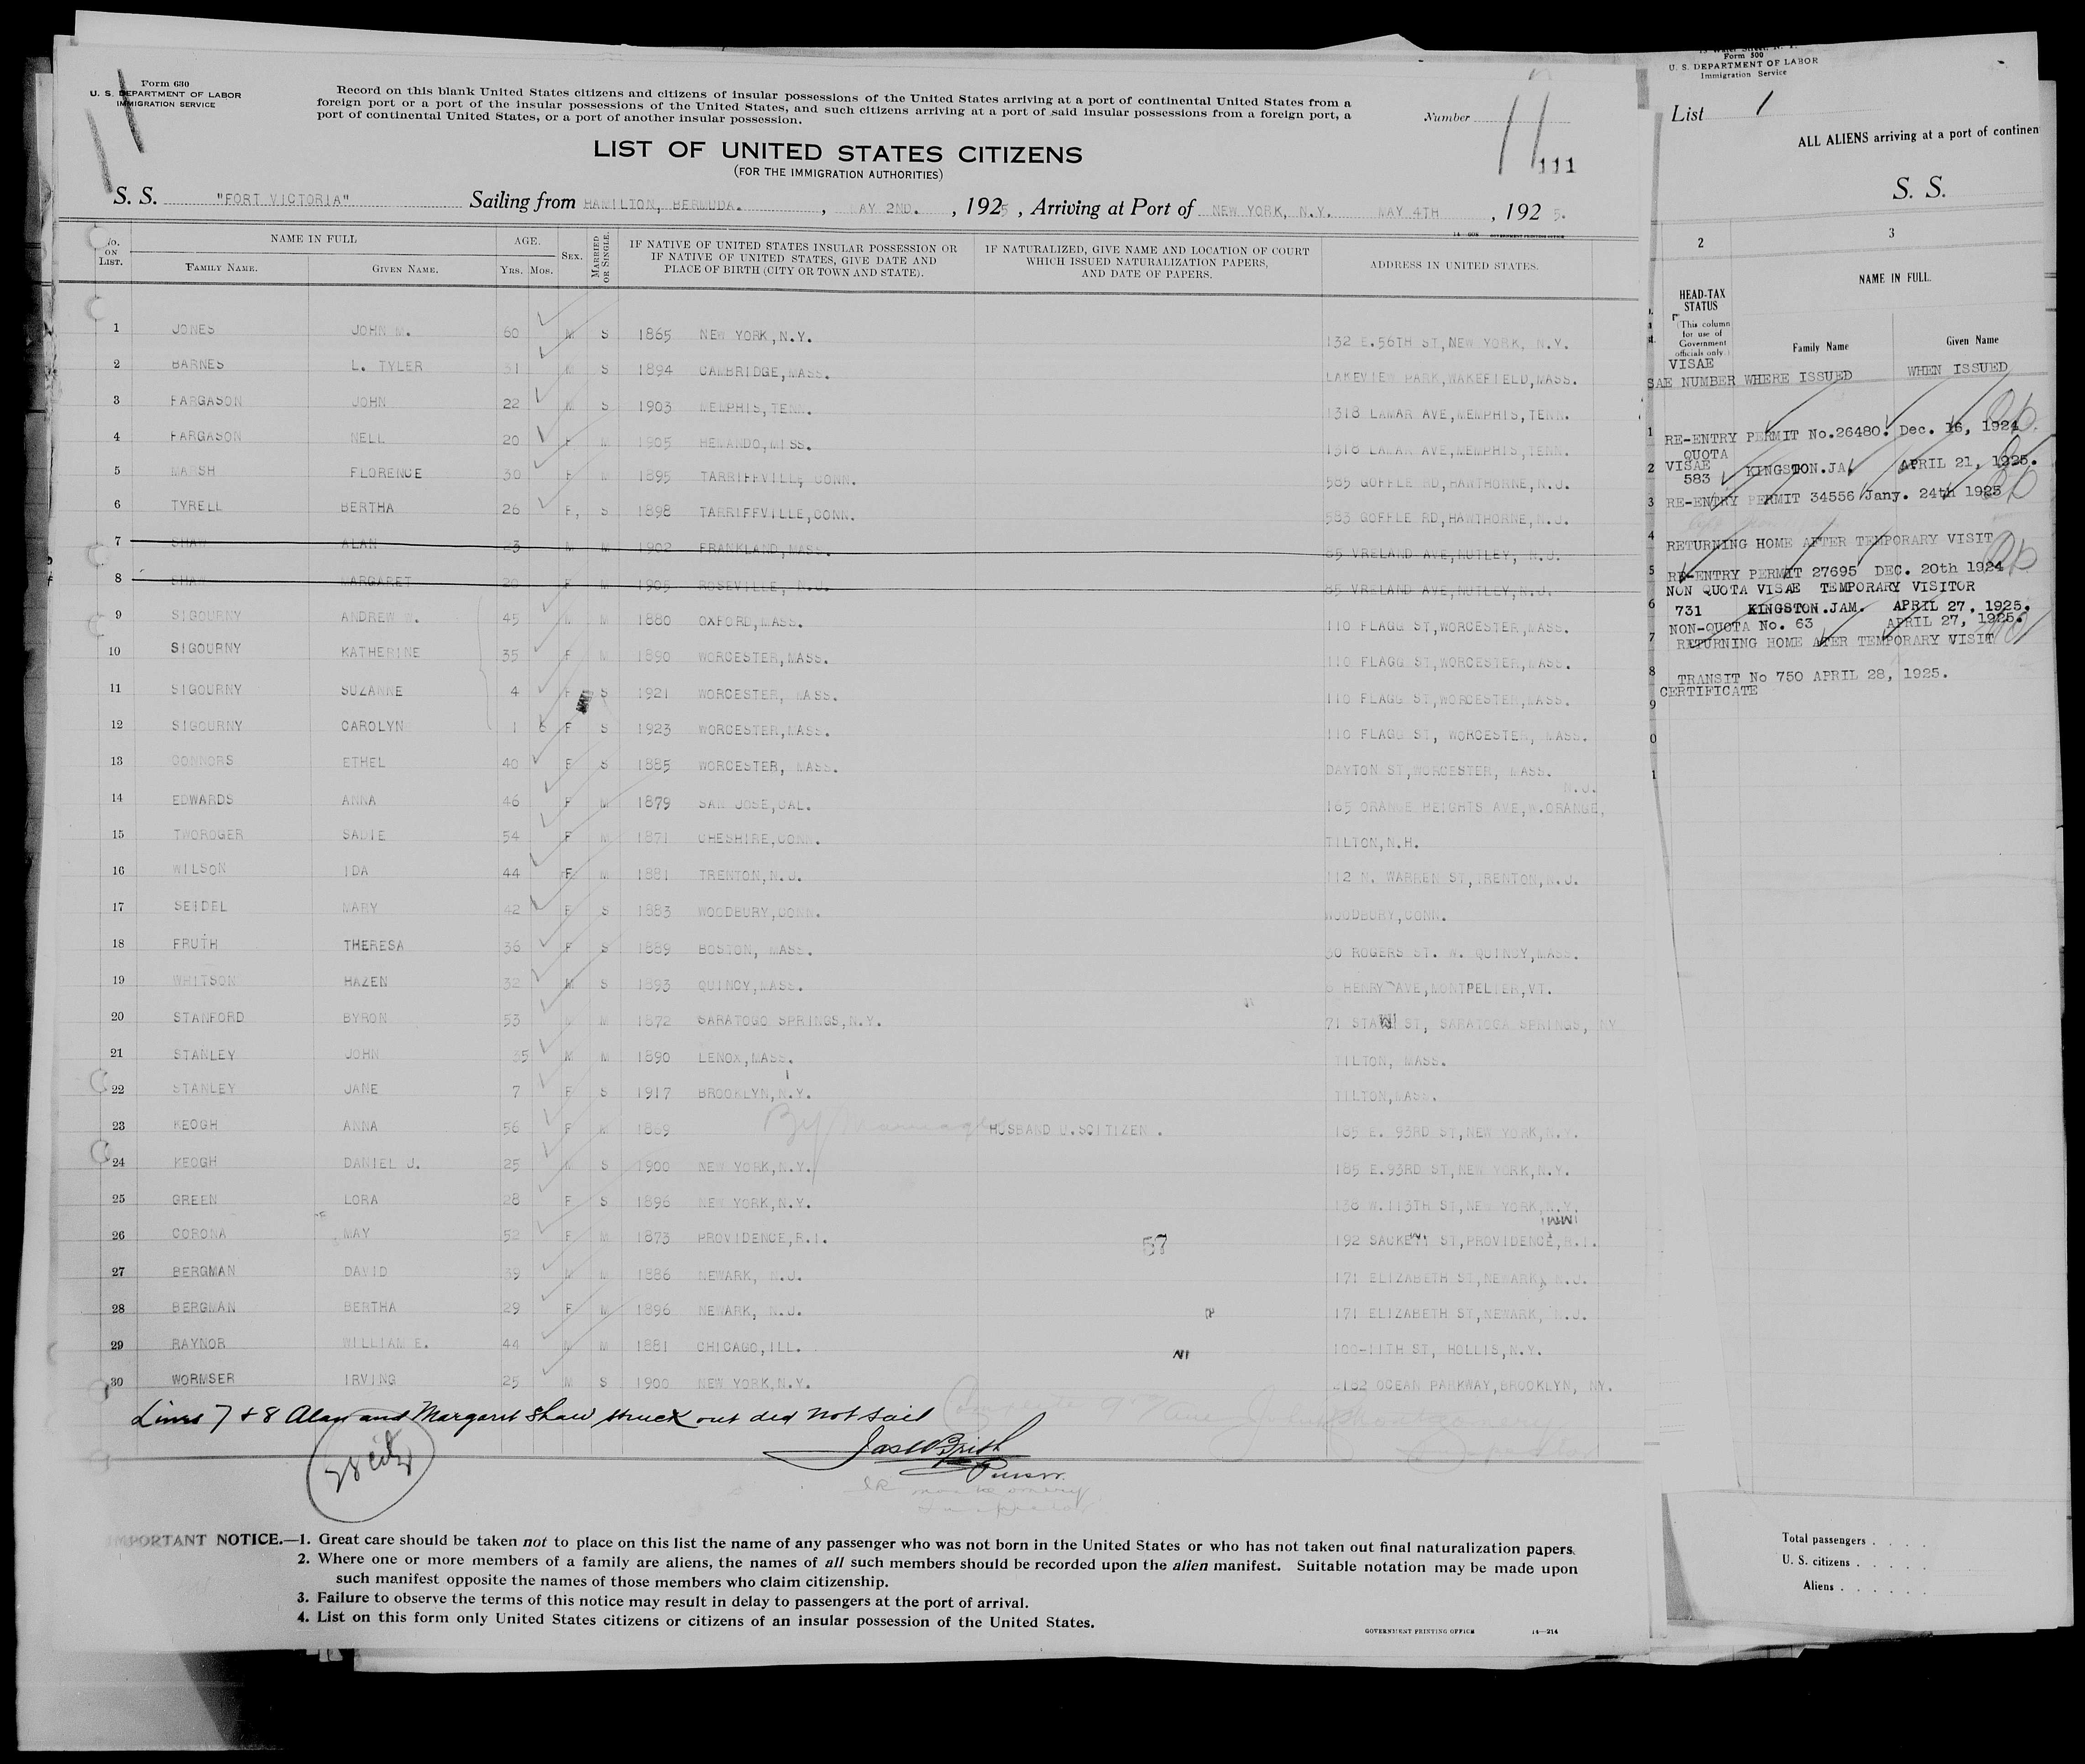 Form 630
U. S. DEPARTMENT OF LABOR
IMMIGRATION SERVICE
Record on this blank United States citizens and citizens of insular possessions of the United States arriving at a port of continental United States from a
foreign port or a port of the insular possessions of the United States, and such citizens arriving at a port of said insular possessions from a foreign port, a
port of continental United States, or a port of another insular possession.
Number 11
111
LIST OF UNITED STATES CITIZENS
(FOR THE IMMIGRATION AUTHORITIES)
S. S. "FORT VICTORIA" Sailing from HAMILTON, BERMUDA. , MAY 2ND. , 1925 , Arriving at Port of NEW YORK, N.Y. MAY 4TH , 192 5.
No. ON LIST. NAME IN FULL AGE. SEX. MARRIED OR SINGLE. IF NATIVE OF UNITED STATES INSULAR POSSESSION OR IF NATIVE OF UNITED STATES, GIVE DATE AND PLACE OF BIRTH (CITY OR TOWN AND STATE). IF NATURALIZED, GIVE NAME AND LOCATION OF COURT WHICH ISSUED NATURALIZATION PAPERS, AND DATE OF PAPERS. ADDRESS IN UNITED STATES.
FAMILY NAME. GIVEN NAME. YRS. MOS.
1 JONES JOHN M. 60 M S 1865 NEW YORK,N.Y. 132 E.56TH ST,NEW YORK, N.Y.
2 BARNES L. TYLER 31 M S 1894 CAMBRIDGE,MASS. LAKEVIEW PARK,WAKEFIELD,MASS.
3 FARGASON JOHN 22 M S 1903 MEMPHIS,TENN. 1318 LAMAR AVE,MEMPHIS,TENN.
4 FARGASON NELL 20 F M 1905 HENANDO,MISS. 1318 LAMAR AVE,MEMPHIS,TENN.
5 MARSH FLORENCE 30 F M 1895 TARRIFFVILL, CONN. 585 GOFFLE RD,HAWTHORNE,N.J.
6 TYRELL BERTHA 26 F, S 1898 TARRIFFVILLE,CONN. 583 GOFFLE RD,HAWTHORNE,N.J.
7 SHAW ALAN 23 M M 1902 FRANKLAND,MASS. 85 VRELAND AVE,NUTLEY, N.J.
8 SHAW MARGARET 20 F M 1905 ROSEVILLE, N.J. 85 VRELAND AVE,NUTLEY,N.J.
9 SIGOURNY ANDREW W. 45 M M 1880 OXFORD,MASS. 110 FLAGG ST,WORCESTER,MASS.
10 SIGOURNY KATHERINE 35 F M 1890 WORCESTER,MASS. 110 FLAGG ST,WORCESTER,MASS.
11 SIGOURNY SUZANNE 4 F S 1921 WORCESTER, MASS. 110 FLAGG ST,WORCESTER,MASS.
12 SIGOURNY CAROLYN 1 6 F S 1923 WORCESTER,MASS. 110 FLAGG ST, WORCESTER, MASS.
13 CONNORS ETHEL 40 F S 1885 WORCESTER, MASS. DAYTON ST,WORCESTER, MASS.
N.J.
14 EDWARDS ANNA 46 F M 1879 SAN JOSE,CAL. 165 ORANGE HEIGHTS AVE,W.ORANGE,
15 TWOROGER SADIE 54 F M 1871 CHESHIRE,CONN. TILTON,N.H.
16 WILSON IDA 44 F M 1881 TRENTON,N.J. 112 N. WARREN ST,TRENTON,N.J.
17 SEIDEL MARY 42 F S 1883 WOODBURY,CONN. WOODBURY,CONN.
18 FRUTH THERESA 36 F S 1889 BOSTON, MASS. 30 ROGERS ST. W. QUINCY,MASS.
19 WHITSON HAZEN 32 M S 1893 QUINCY,MASS. 6 HENRY AVE,MONTPELIER,VT.
20 STANFORD BYRON 53 M M 1872 SARATOGO SPRINGS,N.Y. 71 ST, SARATOGA SPRINGS, NY
21 STANLEY JOHN 35 M M 1890 LENOX,MASS. TILTON, MASS.
22 STANLEY JANE 7 F S 1917 BROOKLYN,N.Y. TILTON,MASS.
23 KEOGH ANNA 56 F M 1869 By Marriage HUSBAND U.SCITIZEN. 185 E. 93RD ST,NEW YORK,N.Y.
24 KEOGH DANIEL J. 25 M S 1900 NEW YORK,N.Y. 185 E.93RD ST,NEW YORK,N.Y.
25 GREEN LORA 28 F S 1896 NEW YORK,N.Y. 138 W.113TH ST,NEW YORK,N.Y.
26 CORONA MAY 52 F M 1873 PROVIDENCE,R.I. 57 192 SACKETT ST,PROVIDENCE,R.I.
27 BERGMAN DAVID 39 M M 1886 NEWARK, N.J. 171 ELIZABETH ST,NEWARK, N.J.
28 BERGMAN BERTHA 29 F M 1896 NEWARK, N.J. 171 ELIZABETH ST,NEWARK, N.J.
29 RAYNOR WILLIAM E. 44 M M 1881 CHICAGO,ILL. 100-11TH ST, HOLLIS,N.Y.
30 WORMSER IRVING 25 M S 1900 NEW YORK,N.Y. 2182 OCEAN PARKWAY,BROOKLYN, NY.
Lines 7 & 8 Alan and Margaret Shaw struck out did not sail
Purser.
28 citz
IMPORTANT NOTICE.—1. Great care should be taken not to place on this list the name of any passenger who was not born in the United States or who has not taken out final naturalization papers.
2. Where one or more members of a family are aliens, the names of all such members should be recorded upon the alien manifest. Suitable notation may be made upon
such manifest opposite the names of those members who claim citizenship.
3. Failure to observe the terms of this notice may result in delay to passengers at the port of arrival.
4. List on this form only United States citizens or citizens of an insular possession of the United States.
GOVERNMENT PRINTING OFFICE 14—214
Form 500
U. S. DEPARTMENT OF LABOR
Immigration Service
List 1
ALL ALIENS arriving at a port of continen
S. S.
2 3
HEAD-TAX STATUS
(This column for use of Government officials only.)
NAME IN FULL.
Family Name Given Name
VISAE
SAE NUMBER WHERE ISSUED WHEN ISSUED
1 RE-ENTRY PERMIT No.26480. Dec. 16, 1924.
QUOTA
2 VISAE KINGSTON.JA. APRIL 21, 1925.
583
3 RE-ENTRY PERMIT 34556 Jany. 24th 1925
4 RETURNING HOME AFTER TEMPORARY VISIT
5 RE-ENTRY PERMIT 27695 DEC. 20th 1924
NON QUOTA VISAE TEMPORARY VISITOR
6 731 KINGSTON.JAM. APRIL 27, 1925.
NON-QUOTA No. 63 APRIL 27, 1925.
7 RETURNING HOME AFTER TEMPORARY VISIT
8 TRANSIT No 750 APRIL 28, 1925.
CERTIFICATE
9
0
1
Total passengers . . . .
U. S. citizens . . . . .
Aliens . . . . . .